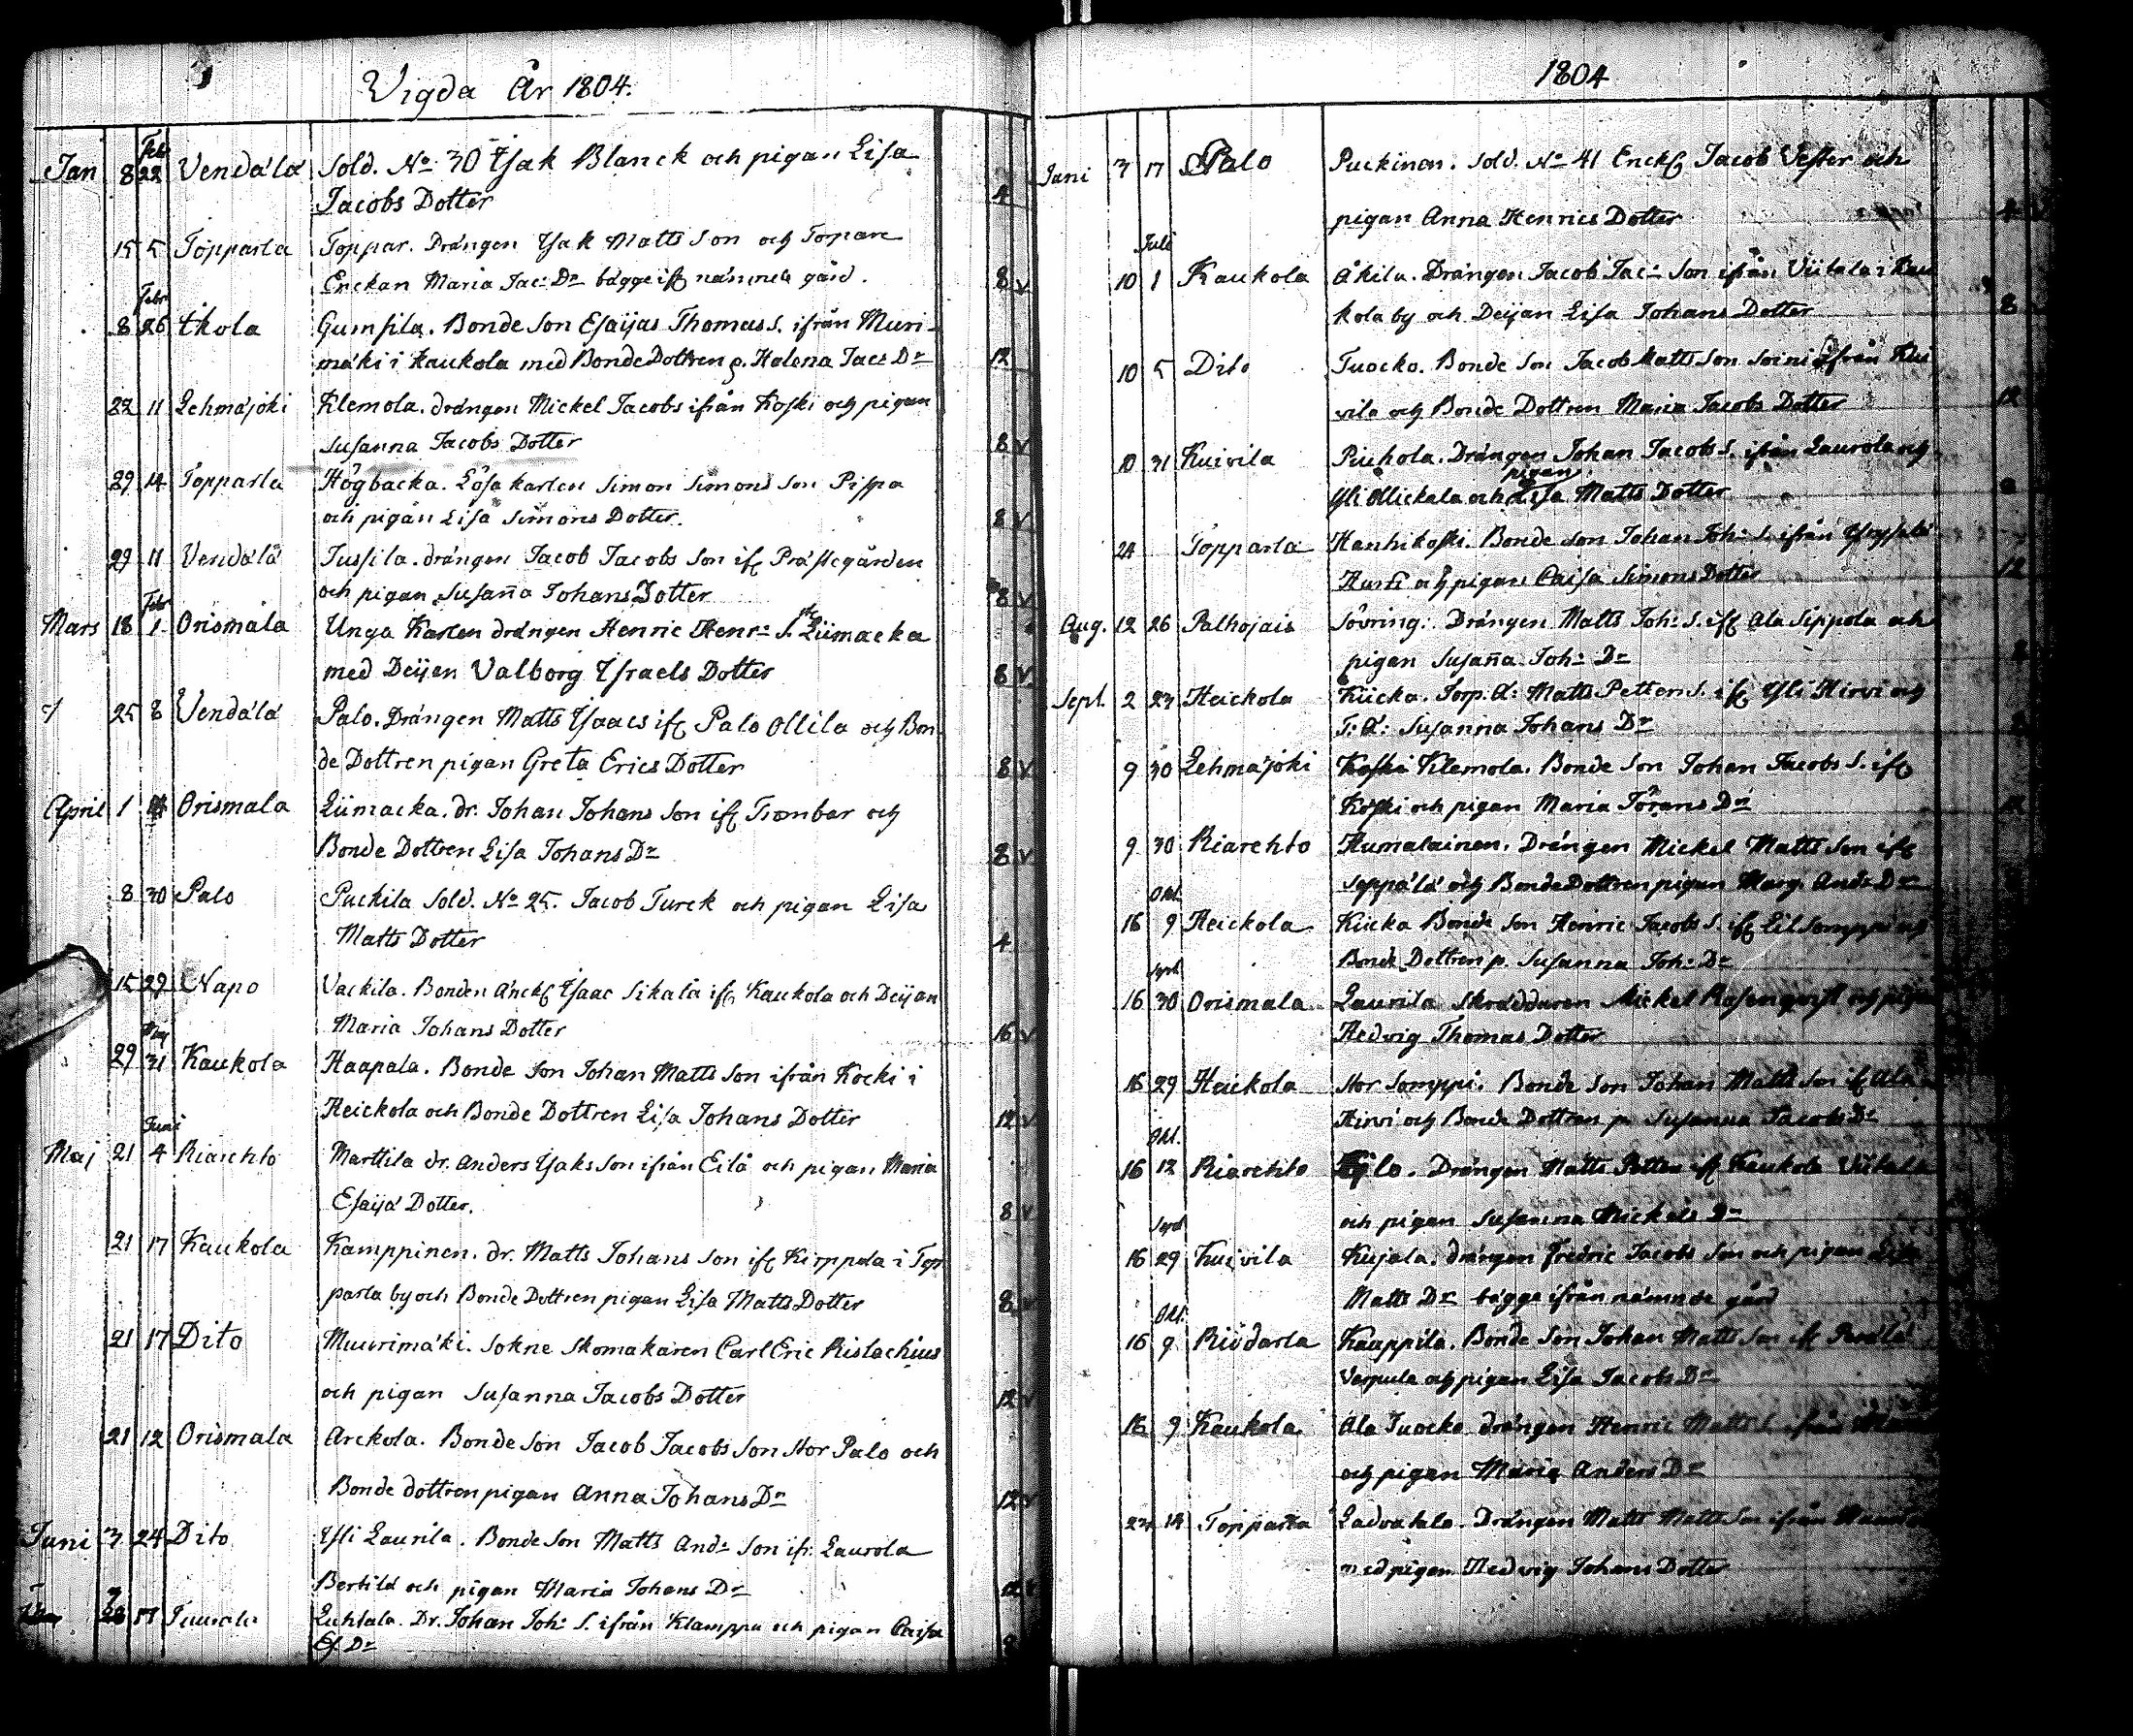 Vigda År 1804.
Feb
Jan 8 22 Vendälä Sold. No 30 Ysak Blanck och pigan Lisa
Jacobs Dotter 4
15 5 Topparla Toppar. Drängen Ysak Matts Son och Torpare
Enckan Maria Jac: Dr bägge ifr nämnda gård. 8 v
Febr
8 26 Ikola Gumsila. Bonde Son Esaijas Thomas S. ifrån Muri-
mäki i Kaukola med Bonde Dottren p. Helena Jacs Dr 12
22 11 Lehmäjoki Klemola. drängen Mickel Jacobs ifrån Koski och pigan
Susanna Jacobs Dotter 8 v
29 14 Topparla Högbacka. Lösa karlen Simon Simons Son Pispa
och pigan Lisa Simons Dotter. 8 v
29 11 Vendälä Jussila. drängen Jacob Jacobs Son ifr Prästegården
och pigan Susanna Johans Dotter 8 v
Febr
Mars 18 1 Orismala Unga Karlen drängen Henric Henr: S. Liimacka
med Deijen Valborg Ysraels Dotter 8 v
25 8 Vendälä Palo. Drängen Matts Ysaacs ifr Palo Ollila och Bon
de Dottren pigan Greta Erics Dotter 8 v
April 1 Orismala Liimacka. dr. Johan Johans Son ifr Trombar och
Bonde Dottren Lisa Johans Dr 8 v
8 30 Palo Puckila Sold. No 25. Jacob Turck och pigan Lisa
Matts Dotter 4
15 29 Napo Vackila. Bonden änckl Ysaac Sikala ifr Kaukola och Deijan
Maria Johans Dotter 16 v
Maj
29 31 Kaukola Haapala. Bonde Son Johan Matts Son ifrån Kocki i
Heickola och Bonde Dottren Lisa Johans Dotter 12 v
Juni
Maj 21 4 Riarehto Marttila dr. Anders Ysaks Son ifrån Eilä och pigan Maria
Esaijä Dotter. 8 v
21 17 Kaukola Kamppinen. dr. Matts Johans Son ifr Kirppola i Top
parla by och Bonde Dottren pigan Lisa Matts Dotter 8 v
21 17 Dito Muurimäki. Sokne Skomakaren Carl Eric Ristachius
och pigan Susanna Jacobs Dotter 12 v
21 12 Orismala Arckola. Bonde Son Jacob Jacobs Son Stor Palo och
Bonde dottren pigan Anna Johans Dr 12 v
Juni 3 24 Dito Ysli Laurila. Bonde Son Matts And: Son ifr. Laurola
Bertila och pigan Maria Johans Dr 12
17 Luhtala. Dr. Johan Joh: S. ifrån Klamppu och pigan Caisa
Es Dr 8
1804
Juni 3 17 Palo Puckinen. Sold. No 41 Enckl Jacob Vester och
pigan Anna Henrics Dotter 4
Juli
10 1 Kaukola Äkila. Drängen Jacob Jac: Son ifrån Viitala i Kau
kola by och Deijan Lisa Johans Dotter 8
10 5 Dito Tuocko. Bonde Son Jacob Matts Son Soini ifrån Kui
vila och Bonde Dottren Maria Jacobs Dotter 12
10 31 Kuivila Piuhola. Drängen Johan Jacobs S. ifrån Laurola och
pigan
Yli Ollickala och Lisa Matts Dotter
24 Topparla Hanhikoski. Bonde Son Johan Joh: S. ifrån
och pigan Caisa Simons Dotter 12
Aug. 12 26 Palhojais Sövring. Drängen Matts Joh: S. ifr Ala Sippola och
pigan Susanna Joh: Dr
Sept. 2 23 Heickola Kiicka. Torp. d: Matts Petters S. ifr Yli Hirvi och
T: d: Susanna Johans Dr
9 30 Lehmäjoki Koski Klemola. Bonde Son Johan Jacobs S. ifr
Koski och pigan Maria Jörans Dr 12
9 30 Riarehto Humalainen. Drängen Mickel Matts Son ifr
Seppälä och Bonde Dottren pigan Marg. Ands Dr
Okt.
16 9 Heickola Kiicka Bonde Son Henric Jacobs S. ifr Lil Somppi och
Bonde Dottren p. Susanna Joh: Dr
Sept
16 30 Orismala Laurila Skräddaren Mickel Rosenqvist och pigan
Hedvig Thomas Dotter
16 29 Heickola Stor Somppi. Bonde Son Johan Matts Son ifr Ala
Hirvi och Bonde Dottren p. Susanna Jacobs Dr
Okt.
16 12 Riarehto Drängen Matts Petters ifr Kaukola Viitala
och pigan Susanna Mickels Dr
Sept
16 29 Kuivila Kujala. drängen Fredric Jacobs Son och pigan Lisa
Matts Dr bägge ifrån nämnde gård
Okt.
16 9 Riödarla Kauppila. Bonde Son Johan Matts Son ifr
och pigan Lisa Jacobs Dr
16 9 Kaukola Ala Tuocko drängen Henric Matts S. ifrån
och pigan Maria Anders Dr
14 Topparla Ladvatala. Drängen Matts Matts Son ifrån
med pigan Hedvig Johans Dotter